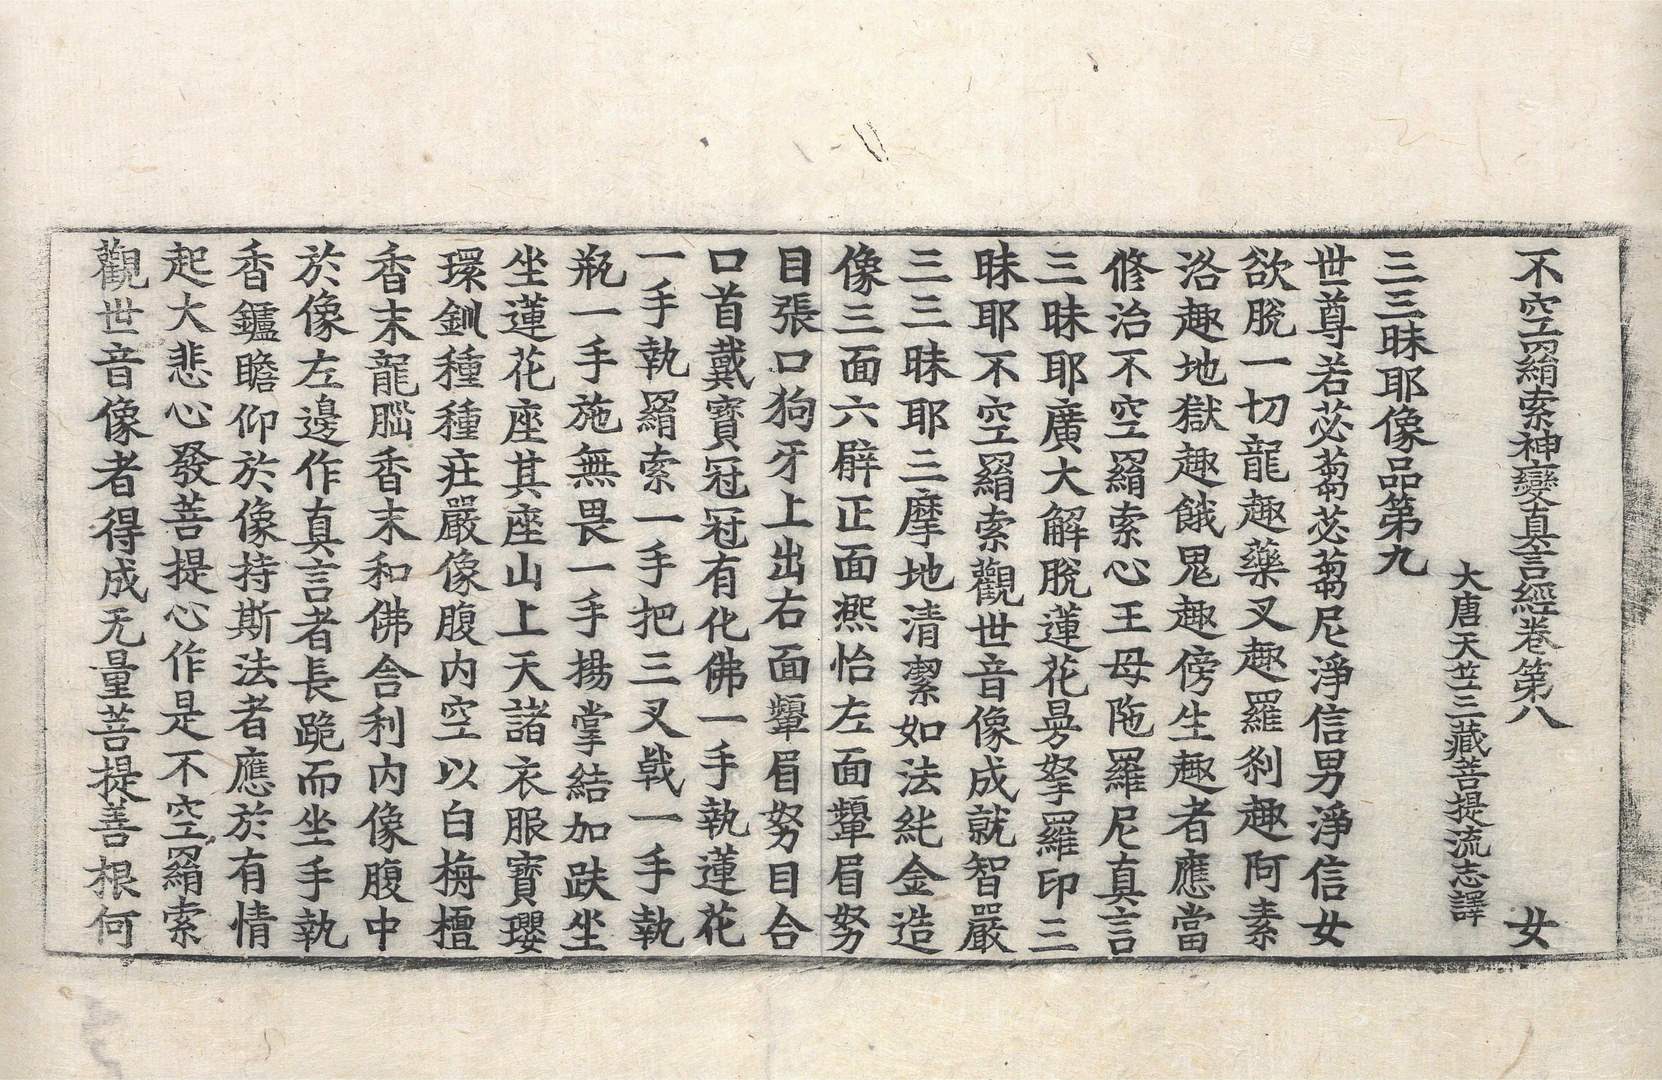 不空羂索神變真言經卷第八 女
大唐天竺三藏菩提流志譯
三三昧耶像品第九
世尊若苾蒭苾蒭尼淨信男淨信女
欲脫一切龍趣藥叉趣羅剎趣阿素
洛趣地獄趣餓鬼趣傍生趣者應當
修治不空羂索心王母陁羅尼真言
三昧耶廣大解脫蓮花曼拏羅印三
昧耶不空羂索觀世音像成就智嚴
三三昧耶三摩地清潔如法純金造
像三面六臂正面熙怡左面顰眉努
目張口狗牙上出右面顰眉努目合
口首戴寶冠冠有化佛一手執蓮花
一手執羂索一手把三叉戟一手執
瓶一手施無畏一手揚掌結加趺坐
坐蓮花座其座山上天諸衣服寶瓔
環釧種種庄嚴像腹內空以白栴檀
香末龍腦香末和佛舍利內像腹中
於像左邊作真言者長跪而坐手執
香鑪瞻仰於像持斯法者應於有情
起大悲心發菩提心作是不空羂索
觀世音像者得成无量菩提善根何